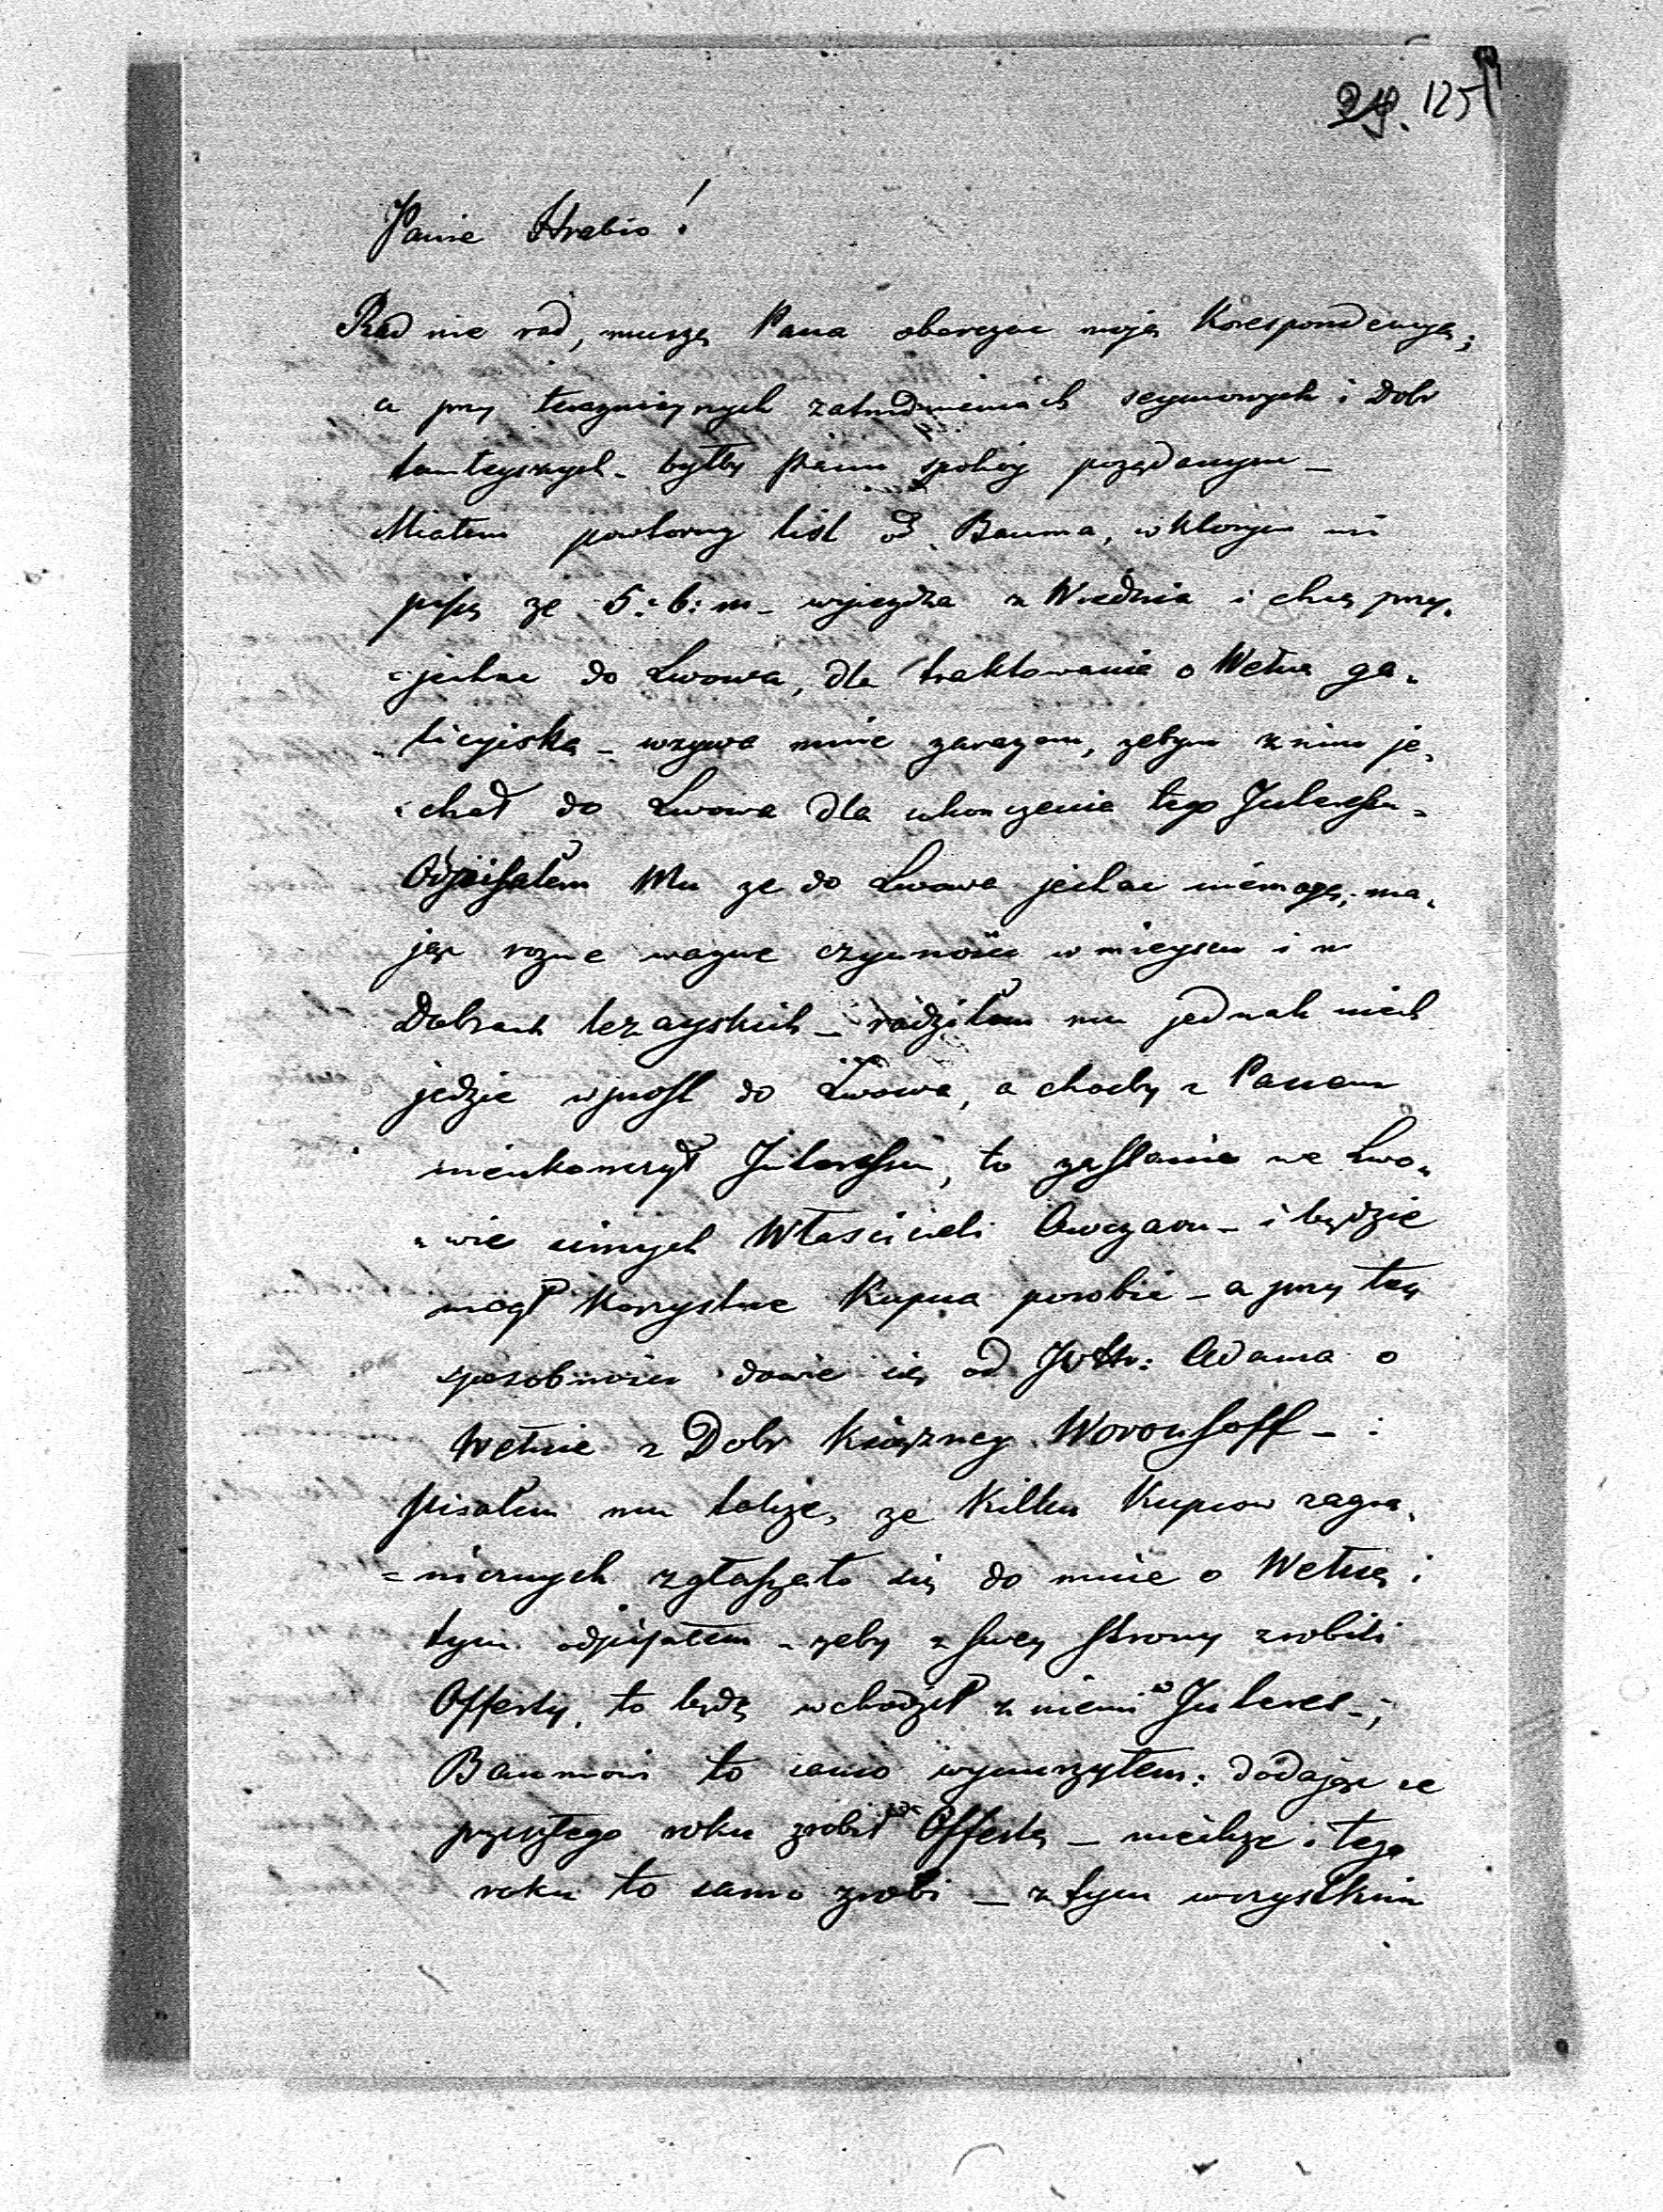 125
Panie Hrabio!
Rad nie rad, muszę Pana obarczac moją Korespondencyą;
a przy teraznieyszych zatrudnieniach seymowych i Dobr
tamteyszych - byłby Panu spokoy pożądanym -
Miałem powtorny list od Bauma, w ktorym mi
piszę ze 5: b: m - wyiezdza z Wiednia i chcę przy,
=jechac do Lwowa, dla traktowania o Wełnę ga,
=licyiską - wzywa mnie zarazem, zebym z nim je,
=chał do Lwowa dla ukonczenia tego Interessu -
Odpisałem Mu ze do Lwowa jechac niemogę, ma,
jąc rozne wazne czynności w mieyscu i w
Dobrach lezayskich - radziłem mu jednak niech
jedzie wprost do Lwowa, a choćby z Panem
nieukonczył Interessu, to zastanie we Lwo,
=wie innych Właścicieli Owczarn - i będzie
mogł korzystne Kupna porobic - a przy tey
sposobności dowie się od JWHr: Adama o
Wełnie z Dobr Xiężney Woronsoff -
pisałem mu takze, ze kilku Kupcow zagra,
=nicznych zgłaszało się do mnie o Wełnę i
tym odpisałem - zeby z swey strony zrobili
Offerty, to będę wchodził z niemi w Interes -;
Baumowi to samo wynurzyłem: dodając ze
przeszłego roku zrobił Offertę - niechze i tego
roku to samo zrobi - z tym wszystkim